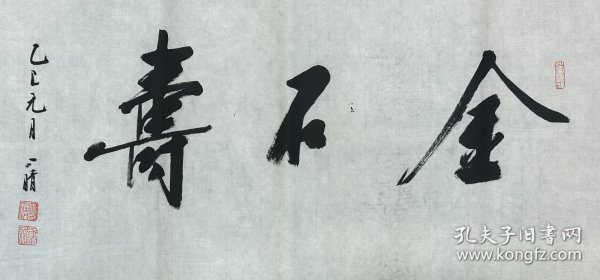 金石壽
乙巳元月 一晴
孔夫子旧书网
www.kongfz.com